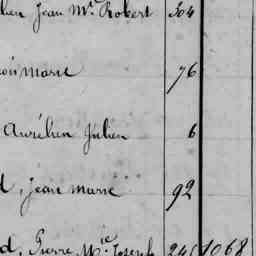 lien Jean Mie Robert 304
Marie 76
Aurélien Julien 6
d, Jean Marie 92
d, Pierre Mie Joseph 240 1068